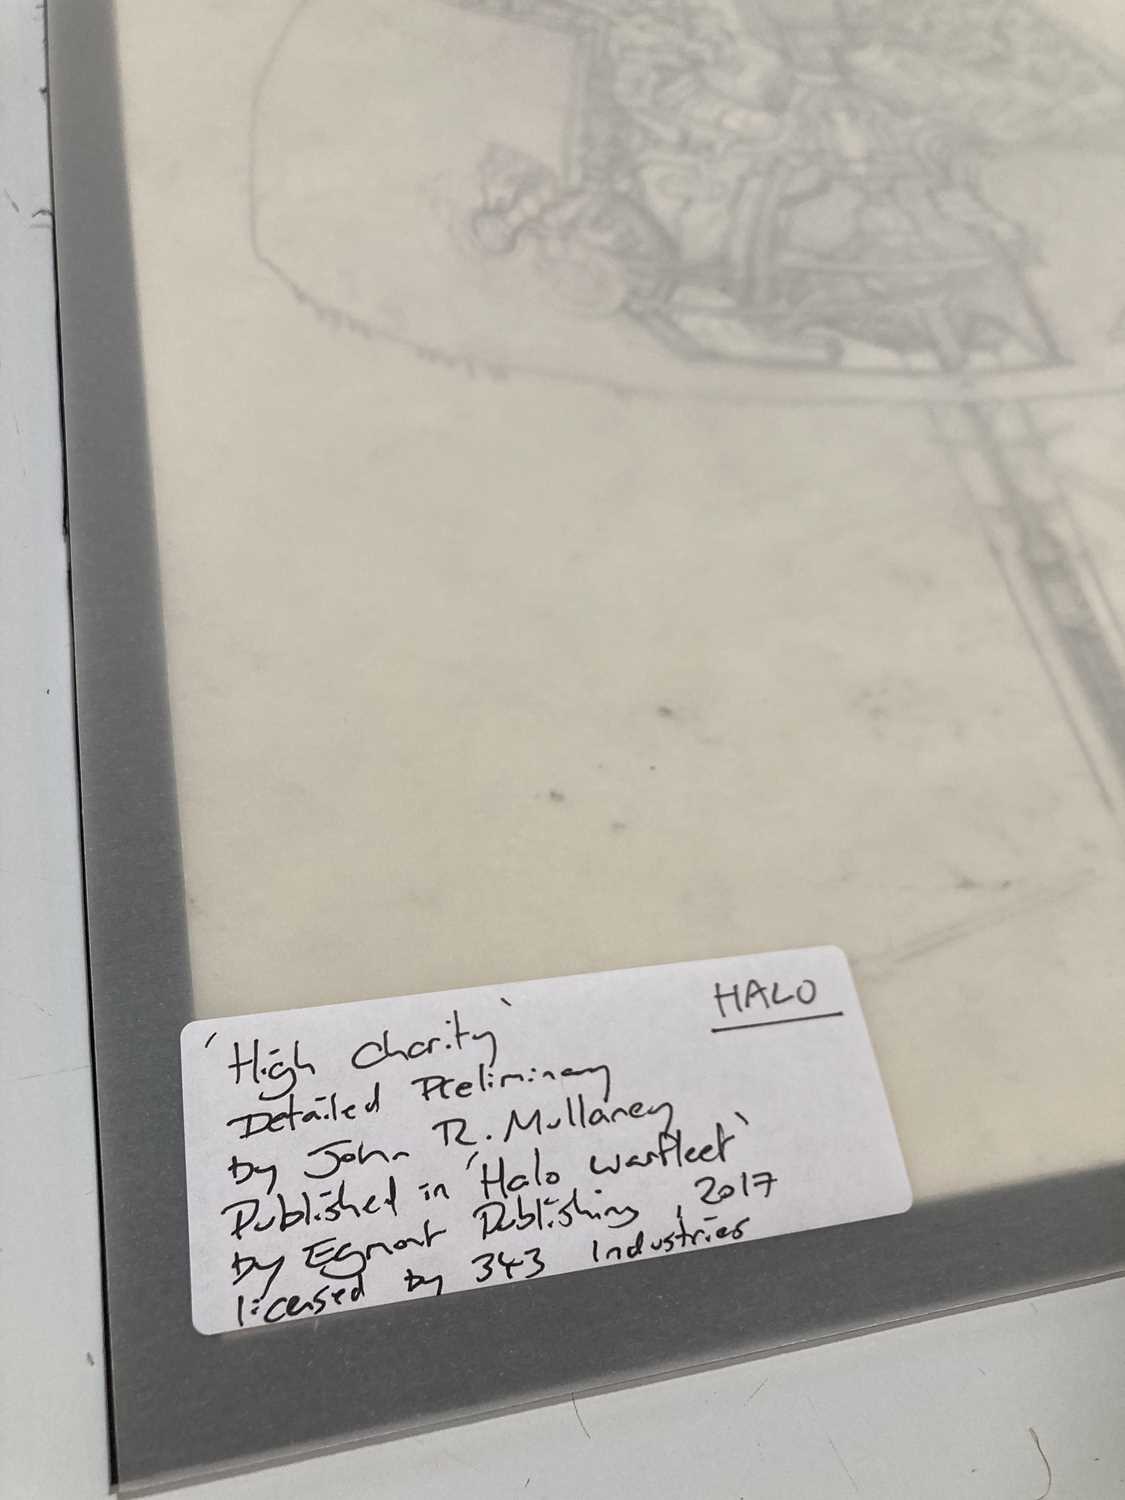 HALO
'High Charity'
Detailed Preliminary
by John R. Mullaney
Published in 'Halo Warfleet'
by Egmont Publishing, 2017
licensed by 343 Industries